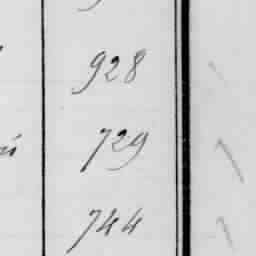 928
729
744